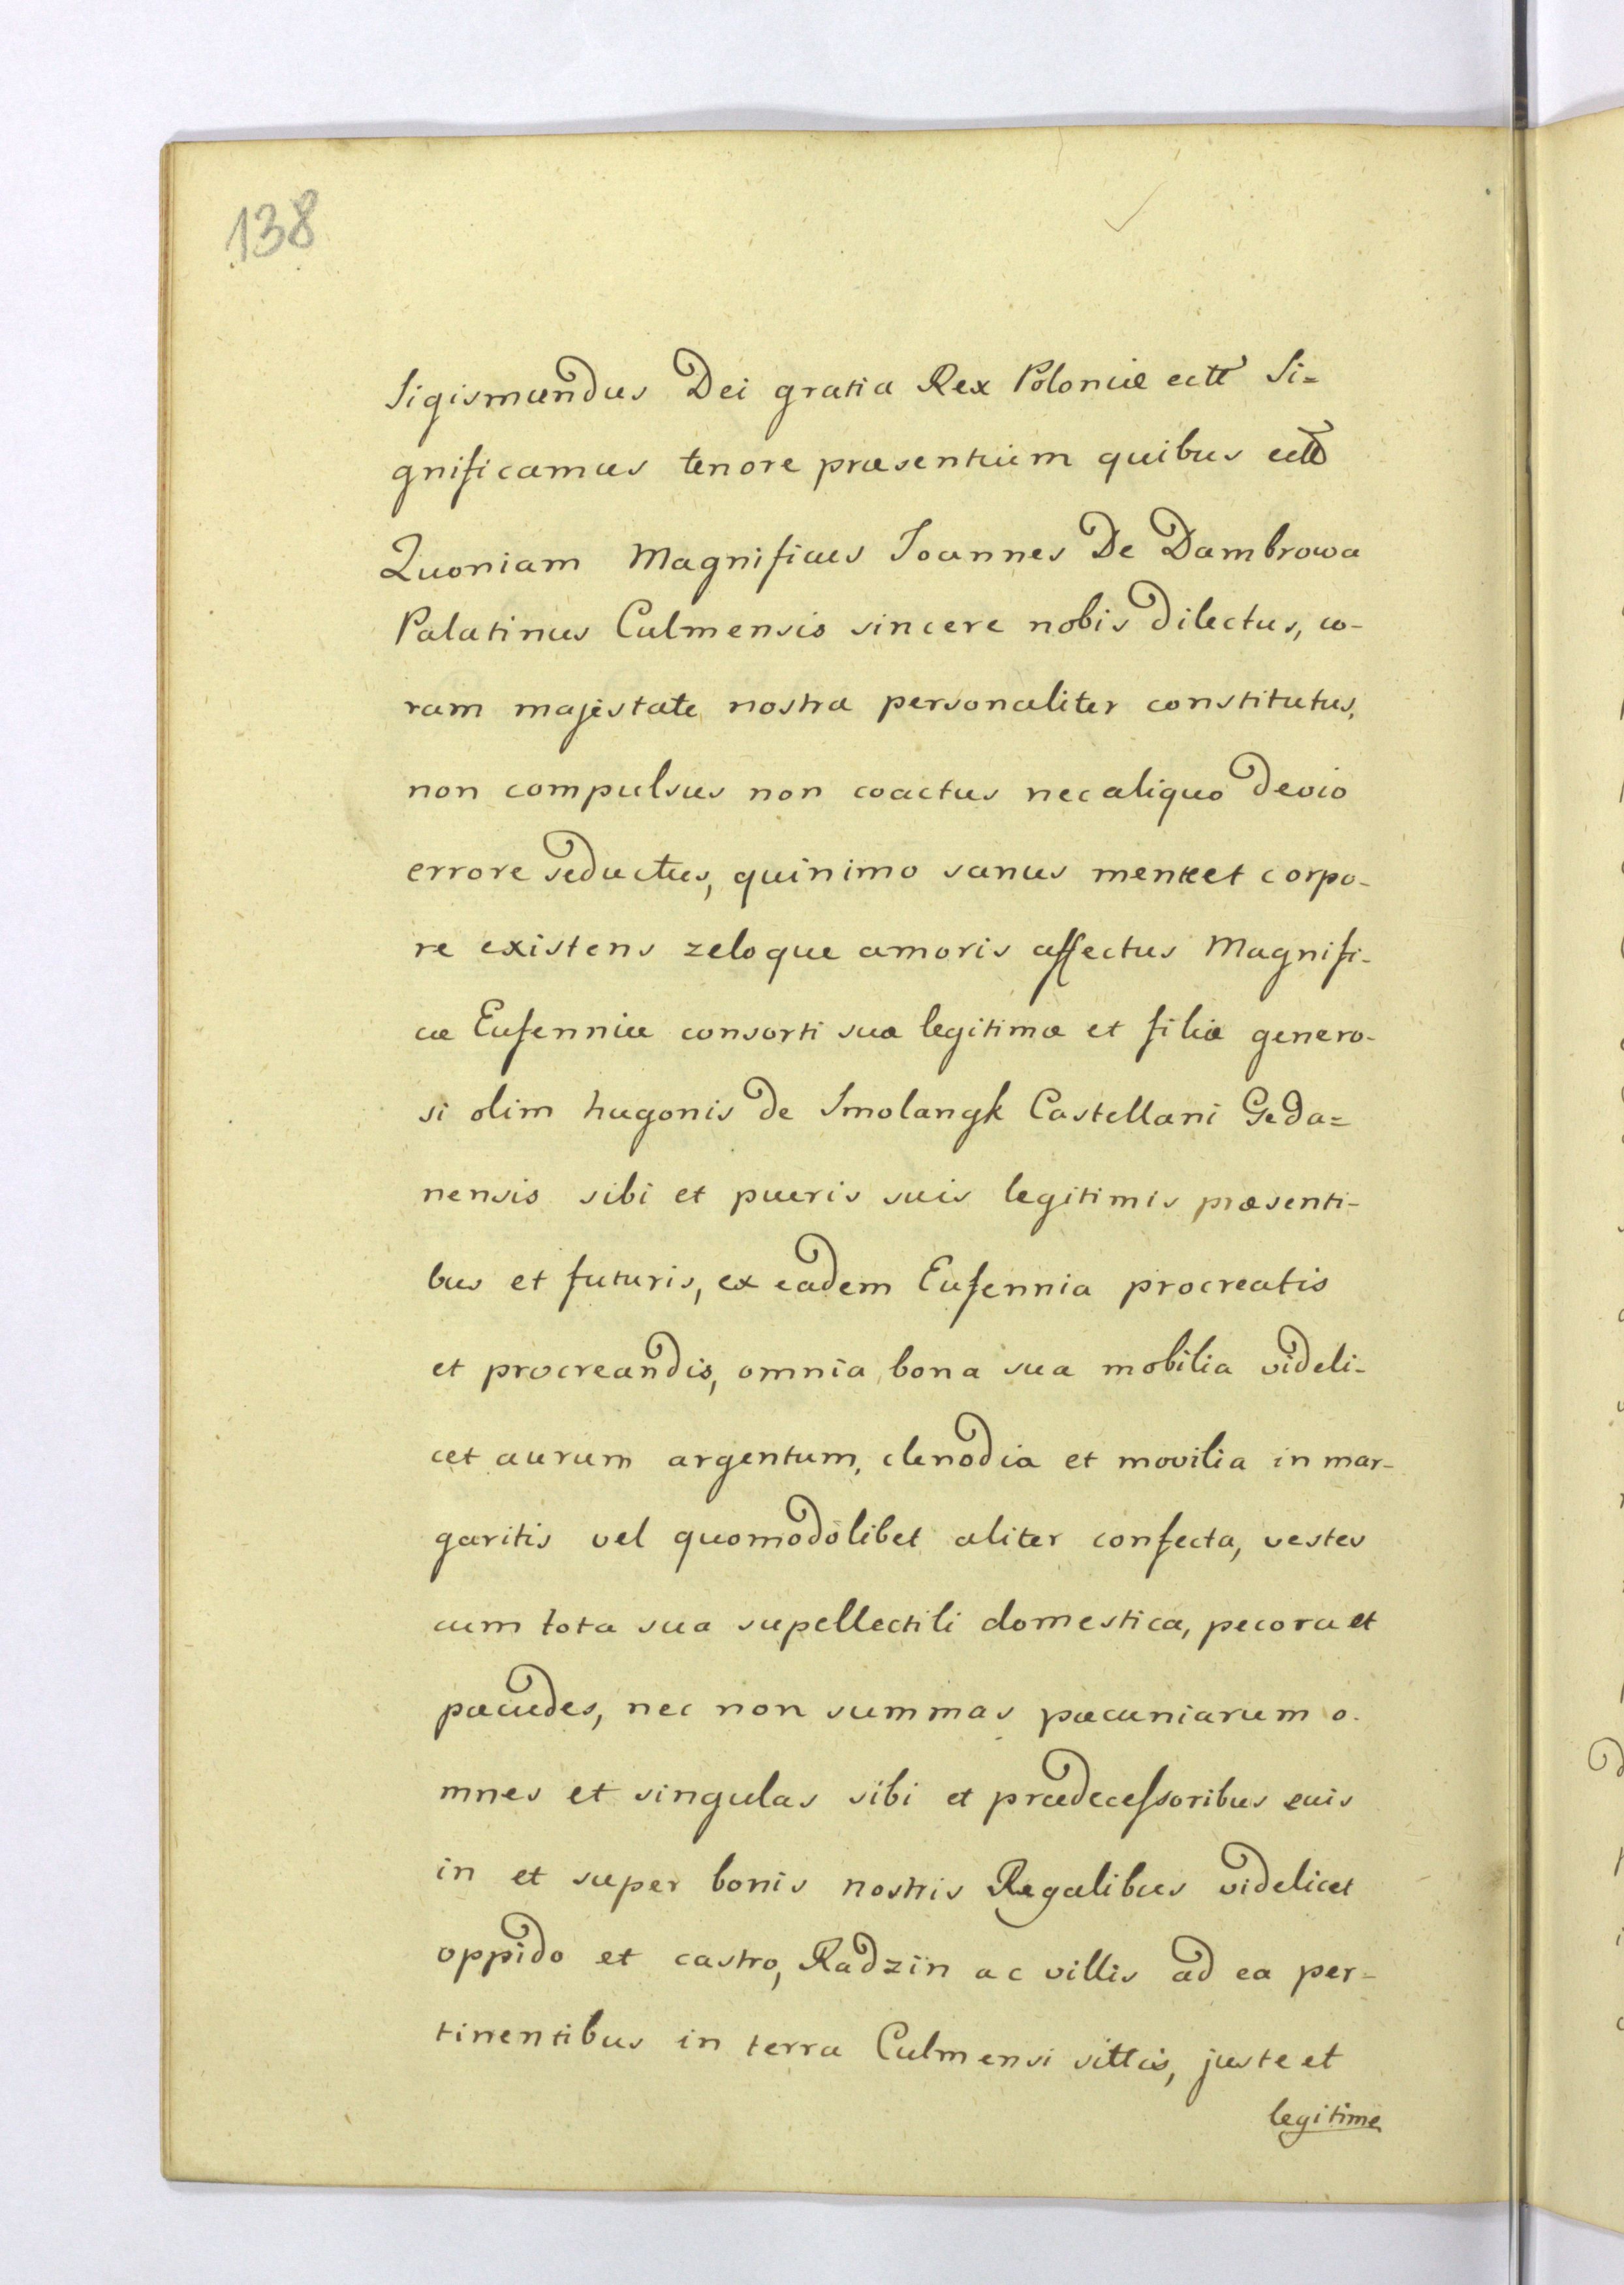 138
Sigismundus Dei gratia Rex Poloniæ ectt Si=
gnificamus tenore præsentium quibus ectt
Quoniam Magnificus Joannes De Dambrowa
Palatinus Culmensis sincere nobis dilectus, co-
ram majestate nostra personaliter constitutus,
non compulsus non coactus nec aliquo devio
errore seductus, quinimo sanus mente et corpo-
re existens zeloque amoris affectus Magnifi-
cæ Eufenniæ consorti suæ legitimæ et filiæ genero-
si olim hugonis de Smolangk Castellani Geda=
nensis sibi et pueris suis legitimis præsenti-
bus et futuris, ex eadem Eufennia procreatis
et procreandis, omnia bona sua mobilia videli-
cet aurum argentum, clenodia et movilia in mar-
garitis vel quomodolibet aliter confecta, vestes
cum tota sua supellectili domestica, pecora et
pæcudes, nec non summas pæcuniarum o-
mnes et singulas sibi et prædecessoribus suis
in et super bonis nostris Regalibus videlicet
oppido et castro, Radzin ac villis ad ea per-
tinentibus in terra Culmensi sittis, juste et
legitime